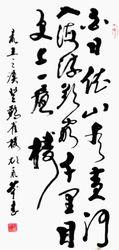 白日依山尽黄河
入海流欲穷千里目
更上一层楼
登鹳雀楼